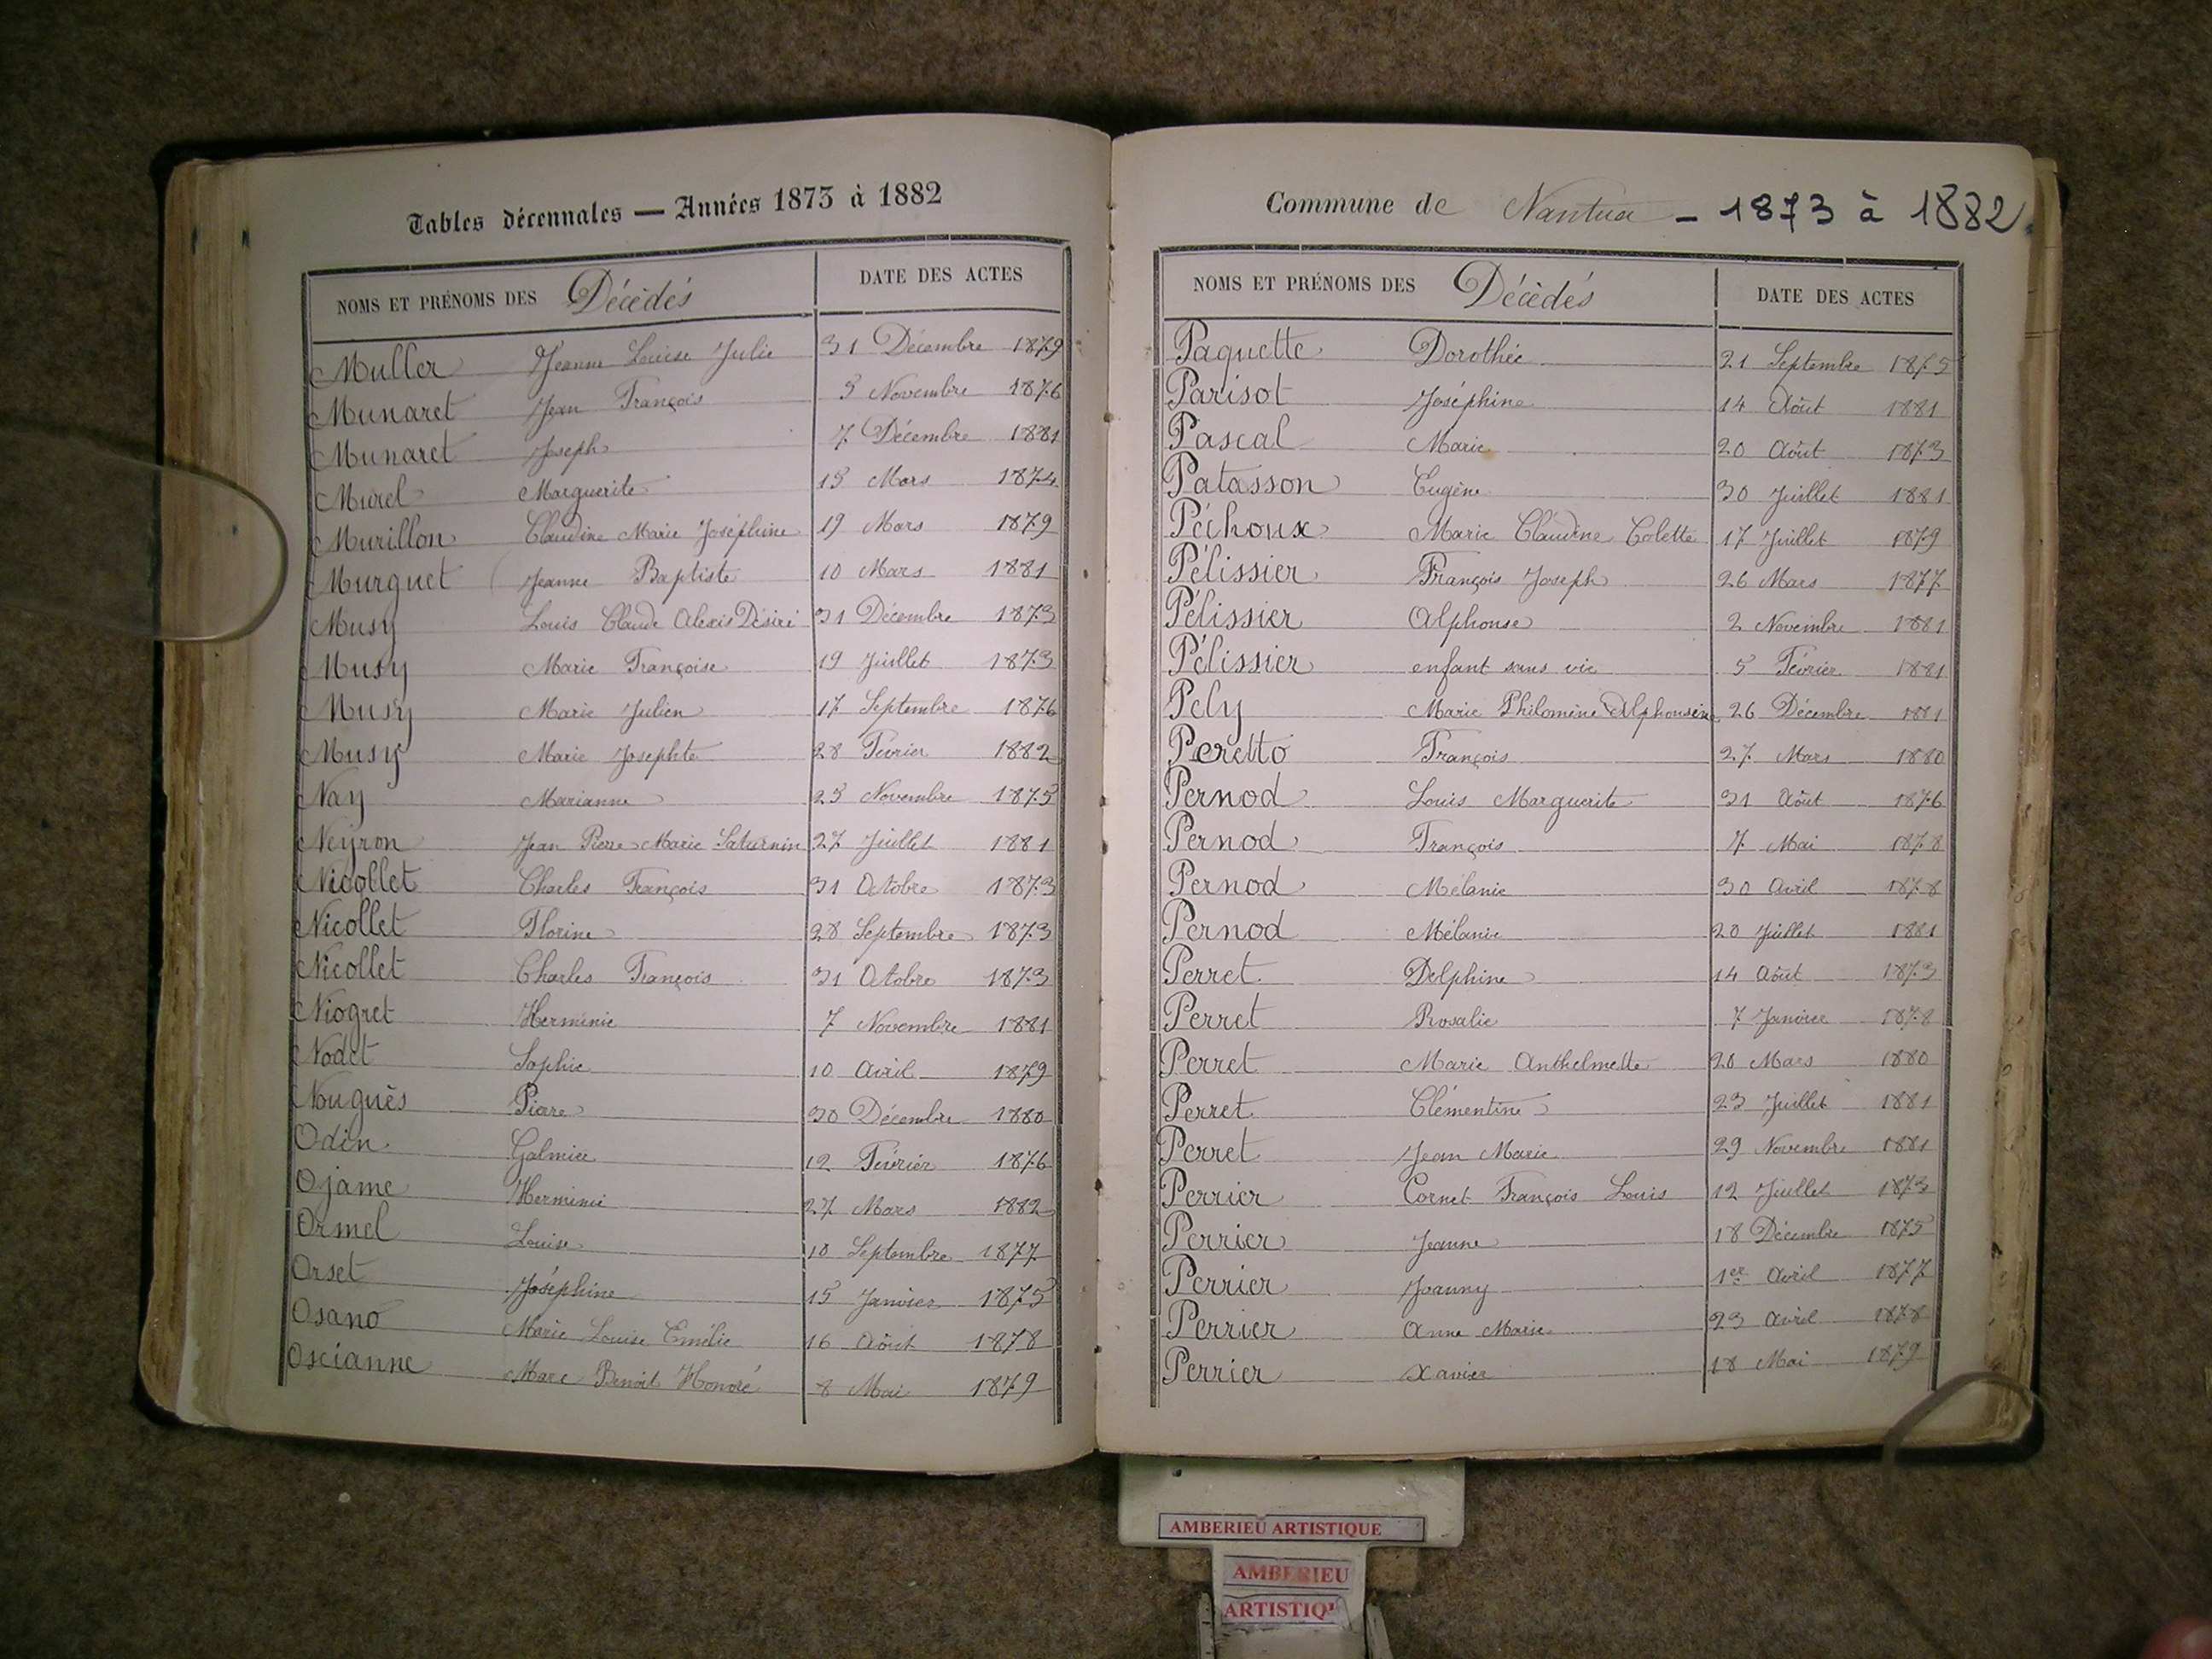 Tables décennales — Années 1873 à 1882
NOMS ET PRÉNOMS DES Décédés DATE DES ACTES
Muller Jeanne Louise Julie 31 Décembre 1879
Munaret Jean François 3 Novembre 1876
Munaret Joseph 7 Décembre 1881
Murel Marguerite 15 Mars 1874
Murillon Claudine Marie Joséphine 19 Mars 1879
Murguet Jeanne Baptiste 10 Mars 1881
Musy Louis Claude Alexis Désiré 31 Décembre 1873
Musy Marie Françoise 19 Juillet 1873
Musy Marie Julien 17 Septembre 1876
Musy Marie Josephte 28 Février 1882
Nay Marianne 23 Novembre 1875
Neyron Jean Pierre Marie Saturnin 27 Juillet 1881
Nicollet Charles François 31 Octobre 1873
Nicollet Florine 28 Septembre 1873
Nicollet Charles François 31 Octobre 1873
Niogret Herminie 7 Novembre 1881
Nodet Sophie 10 Avril 1879
Nouguès Pierre 30 Décembre 1880
Odin Galmier 12 Février 1876
Ojame Herminie 27 Mars 1882
Ormel Louise 10 Septembre 1877
Orset Joséphine 15 Janvier 1875
Osano Marie Louise Emélie 16 Aôut 1878
Oscianne Marc Benoit Honoré 8 Mai 1879
Commune de Nantua - 1873 à 1882
NOMS ET PRÉNOMS DES Décédés DATE DES ACTES
Paquette Dorothée 21 Septembre 1875
Parisot Joséphine 14 Aôut 1881
Pascal Marie 20 Aôut 1873
Patasson Eugène 30 Juillet 1881
Péchoux Marie Claudine Colette 17 Juillet 1879
Pélissier François Joseph 26 Mars 1877
Pélissier Alphonse 2 Novembre 1881
Pélissier enfant sans vie 5 Février 1881
Pely Marie Philomène Alphonsine 26 Décembre 1881
Peretto François 27 Mars 1880
Pernod Louis Marguerite 31 Aôut 1876
Pernod François 7 Mai 1878
Pernod Mélanie 30 Avril 1878
Pernod Mélanie 20 Juillet 1881
Perret Delphine 14 Aôut 1873
Perret Rosalie 7 Janvier 1878
Perret Marie Anthelmette 28 Mars 1880
Perret Clémentine 23 Juillet 1881
Perret Jean Marie 29 Novembre 1881
Perrier Cornet François Louis 12 Juillet 1873
Perrier Jeanne 18 Décembre 1875
Perrier Joanny 1er Avril 1877
Perrier Anne Marie 23 Avril 1878
Perrier Xavier 18 Mai 1879
AMBERIEU ARTISTIQUE
AMBERIEU
ARTISTIQU